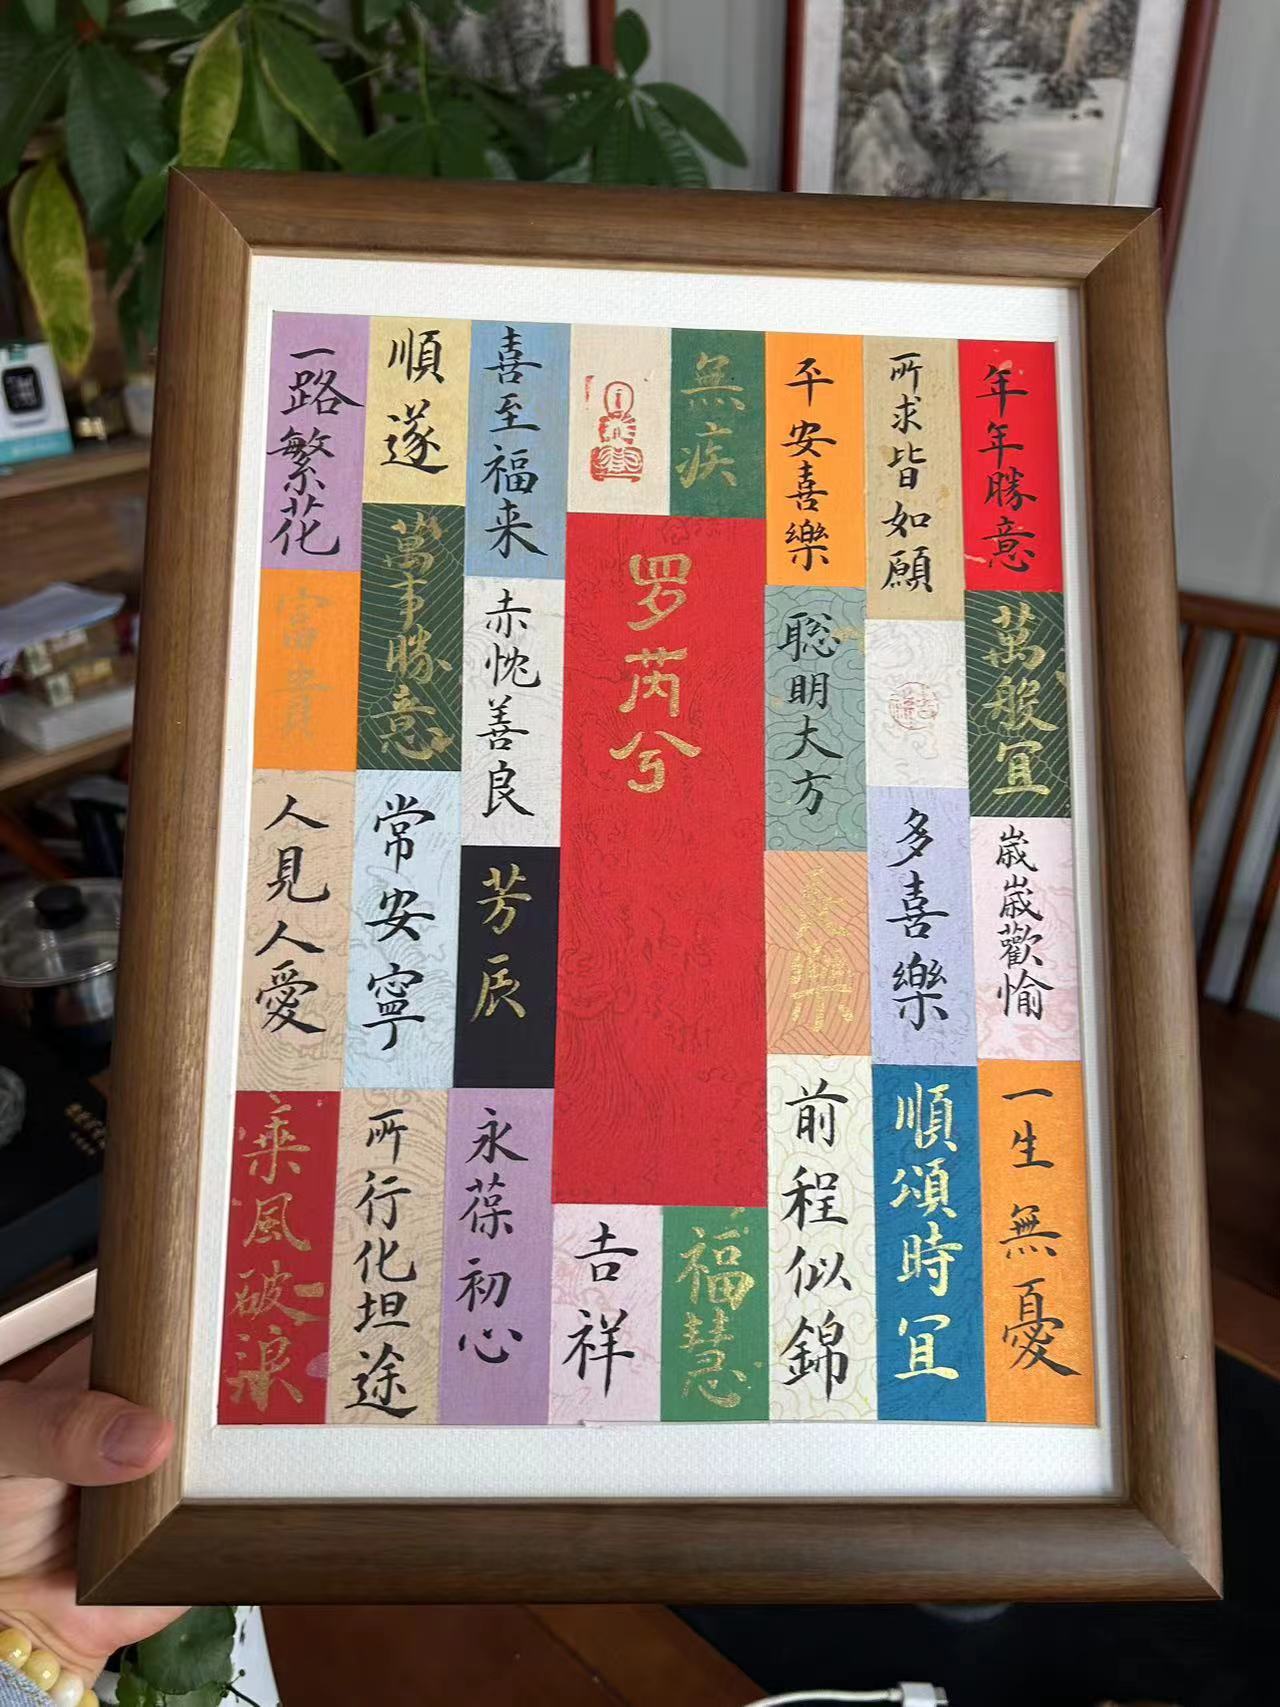 年年勝意
萬般宜
歲歲歡愉
一生無憂
所求皆如願
多喜樂
順頌時宜
平安喜樂
聡明大方
長樂
前程似錦
無疾
罗芮兮
福慧
吉祥
喜至福来
赤忱善良
芳辰
永葆初心
順遂
萬事勝意
常安寧
所行化坦途
一路繁花
富貴
人見人愛
乘風破浪